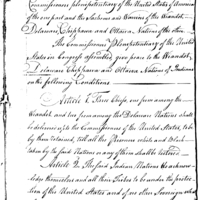 Commissioners Plenipotentiary of the United States of America
of the one part and the Sachems and Warriors of the Wiandot,
Delaware, Chippawa and Ottawa Nations of the other.
The Commissioners Plenipotentiary of the United
States in Congress assembled give peace to the Wiandot,
Delaware, Chippawa and Ottawa Nations of Indians
on the following Conditions
Article 1. Three Chiefs, one from among the
Wiandot, and two from among the Delaware Nations shall
be delivered up to the Commissioners of the United States, to be
by them retained, till all the Prisoners, taken
by the said Nations or any of them shall be restored.
Article 2. The said Indian Nations
themselves and all their Tribes to be under the protec-
tion of the United States and of no other Sovereign